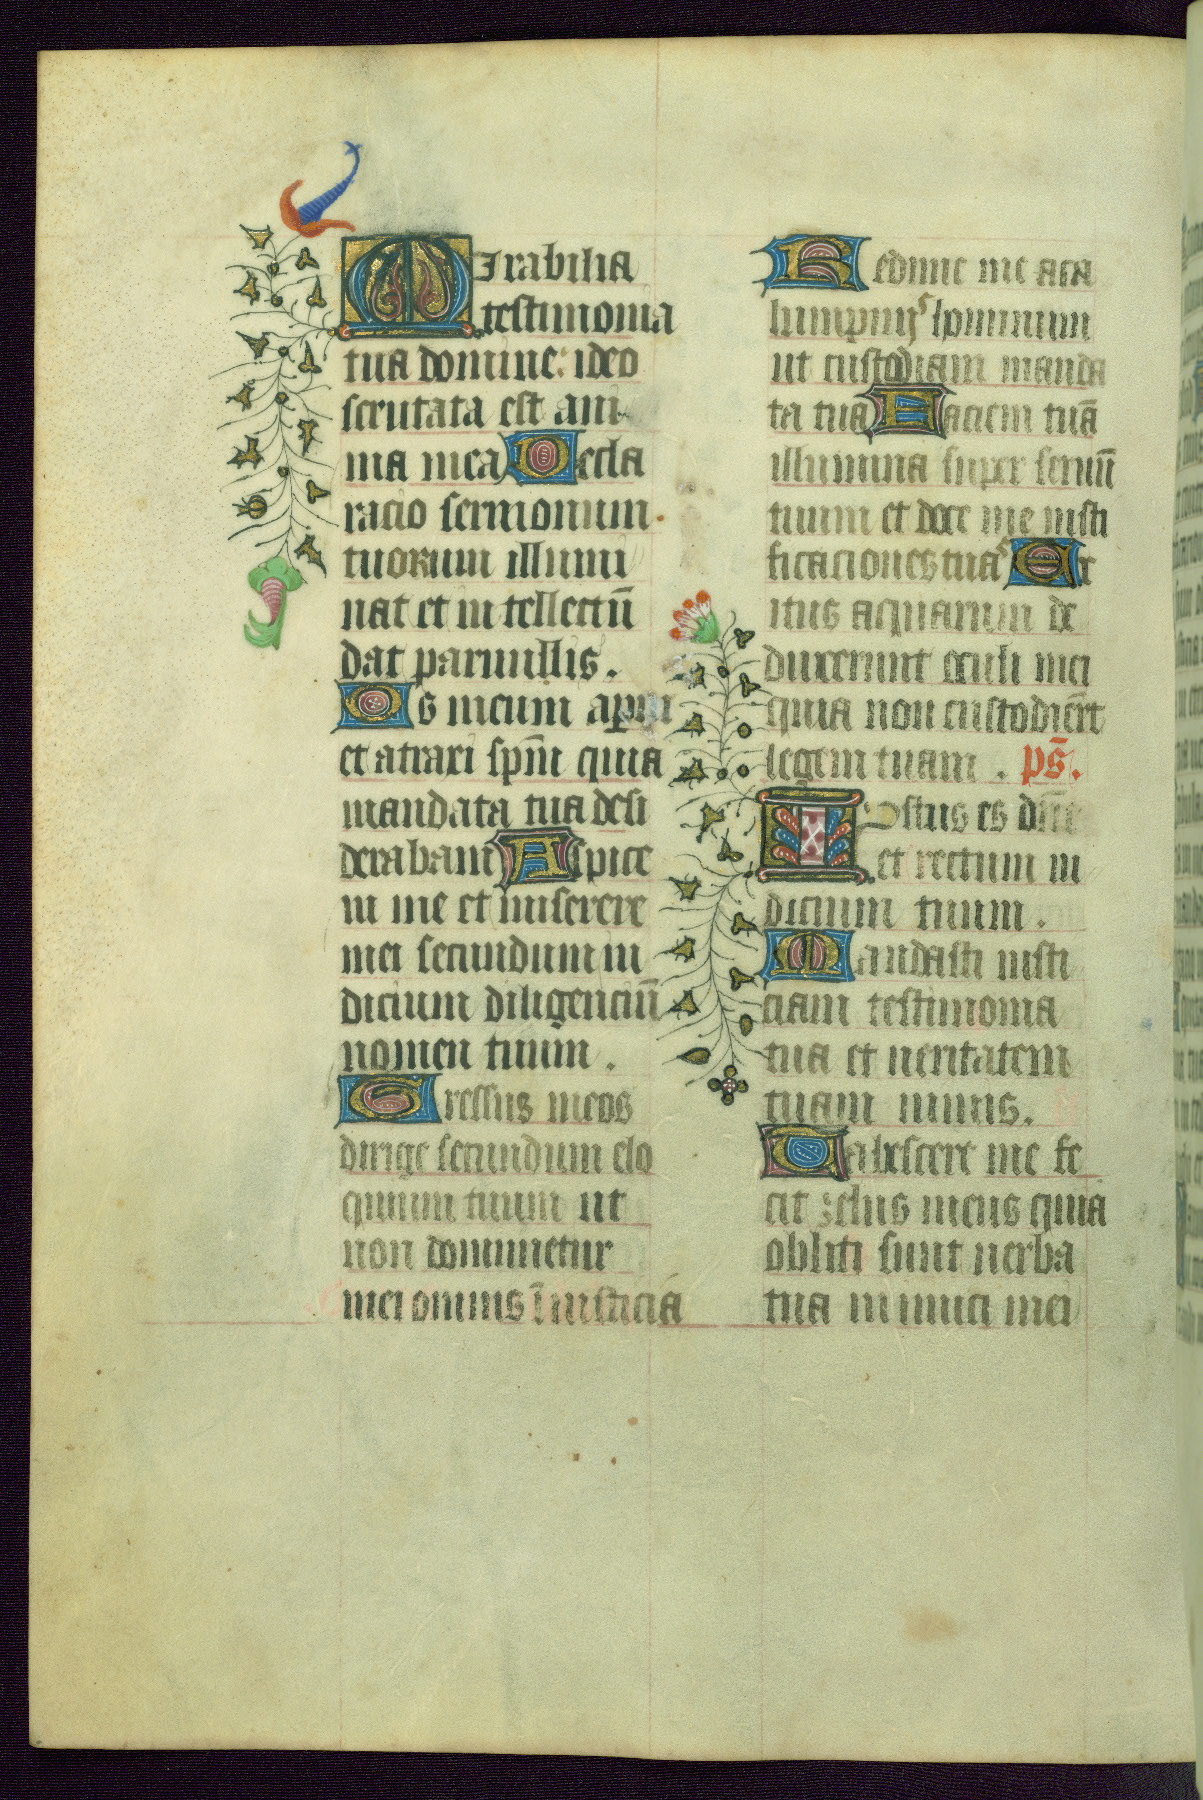 Mirabilia
testimonia
tua domine: ideo
scrutata est ani-
ma mea Decla
racio sermonum.
tuorum illumi
nat et intellectū
dat paruulis.
Os meum aperui
et atraxi spm̄ quia
mandata tua desi
derabam Aspice
in me et miserere
mei secundum iu
dicium diligenciū
nomen tuum.
Gressus meos
dirige secundum elo
quium tuum ut
non dominetur
mei omnis īniusticiā
Redime me a ca
lumpniis hominum
ut custodiam manda
ta tua Faciem tuā
illumina super seruū
tuum et doce me iusti
ficaciones tuas Ex
itus aquarum de
duxerunt oculi mei
quia non custodierūt
legem tuam. ps̄.
Iustus es dn̄e
et rectum iu
dicium tuum.
Mandasti iusti
ciam testimonia
tua et ueritatem
tuam nimis.
Tabescere me fe
cit zelus meus quia
obliti sunt uerba
tua inimici mei